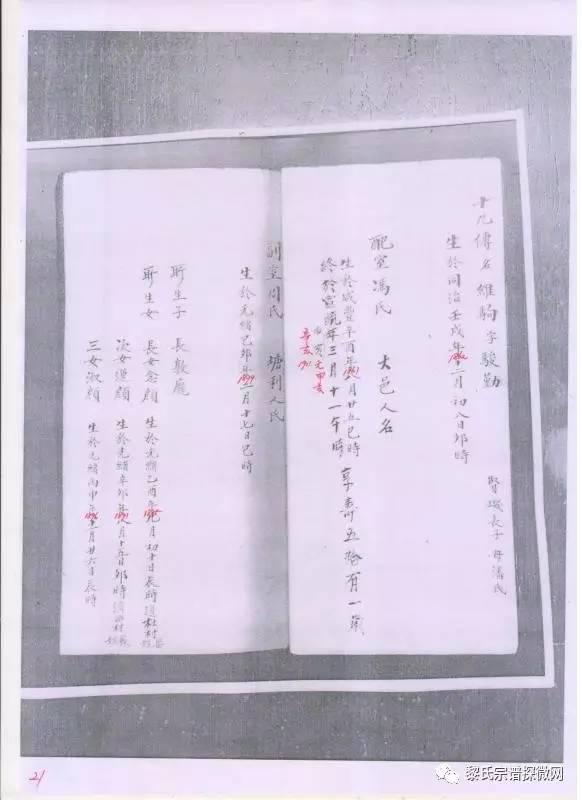 十九傳名維駒字駿勤
賢 長子母潘氏
生於同治壬戌年十二月初八日卯時
1862
配室馮氏 大邑人名
生於咸豐辛酉年八月廿五巳時
1861
終於宣統年三月十一午時 享壽五拾有一歲
辛亥
1911
副室周氏 塘利人氏
生於光緒己卯年二月十七日巳時
1879
所生子 長敷
所生女 長女念顏 生於光緒乙酉年九月初十日辰時適杜村
1885
次女 顏 生於光緒辛卯年八月十五日卯時適
1891
三女淑顏 生於光緒丙申年十一月廿六日辰時
1896
21
黎氏宗谱探微网